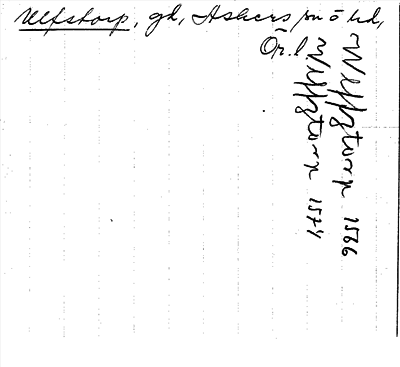 Ulfstorp, gd, Askers sn o hd,
Ör. l
Wlffztorp 1566
Wlffztorp 1574